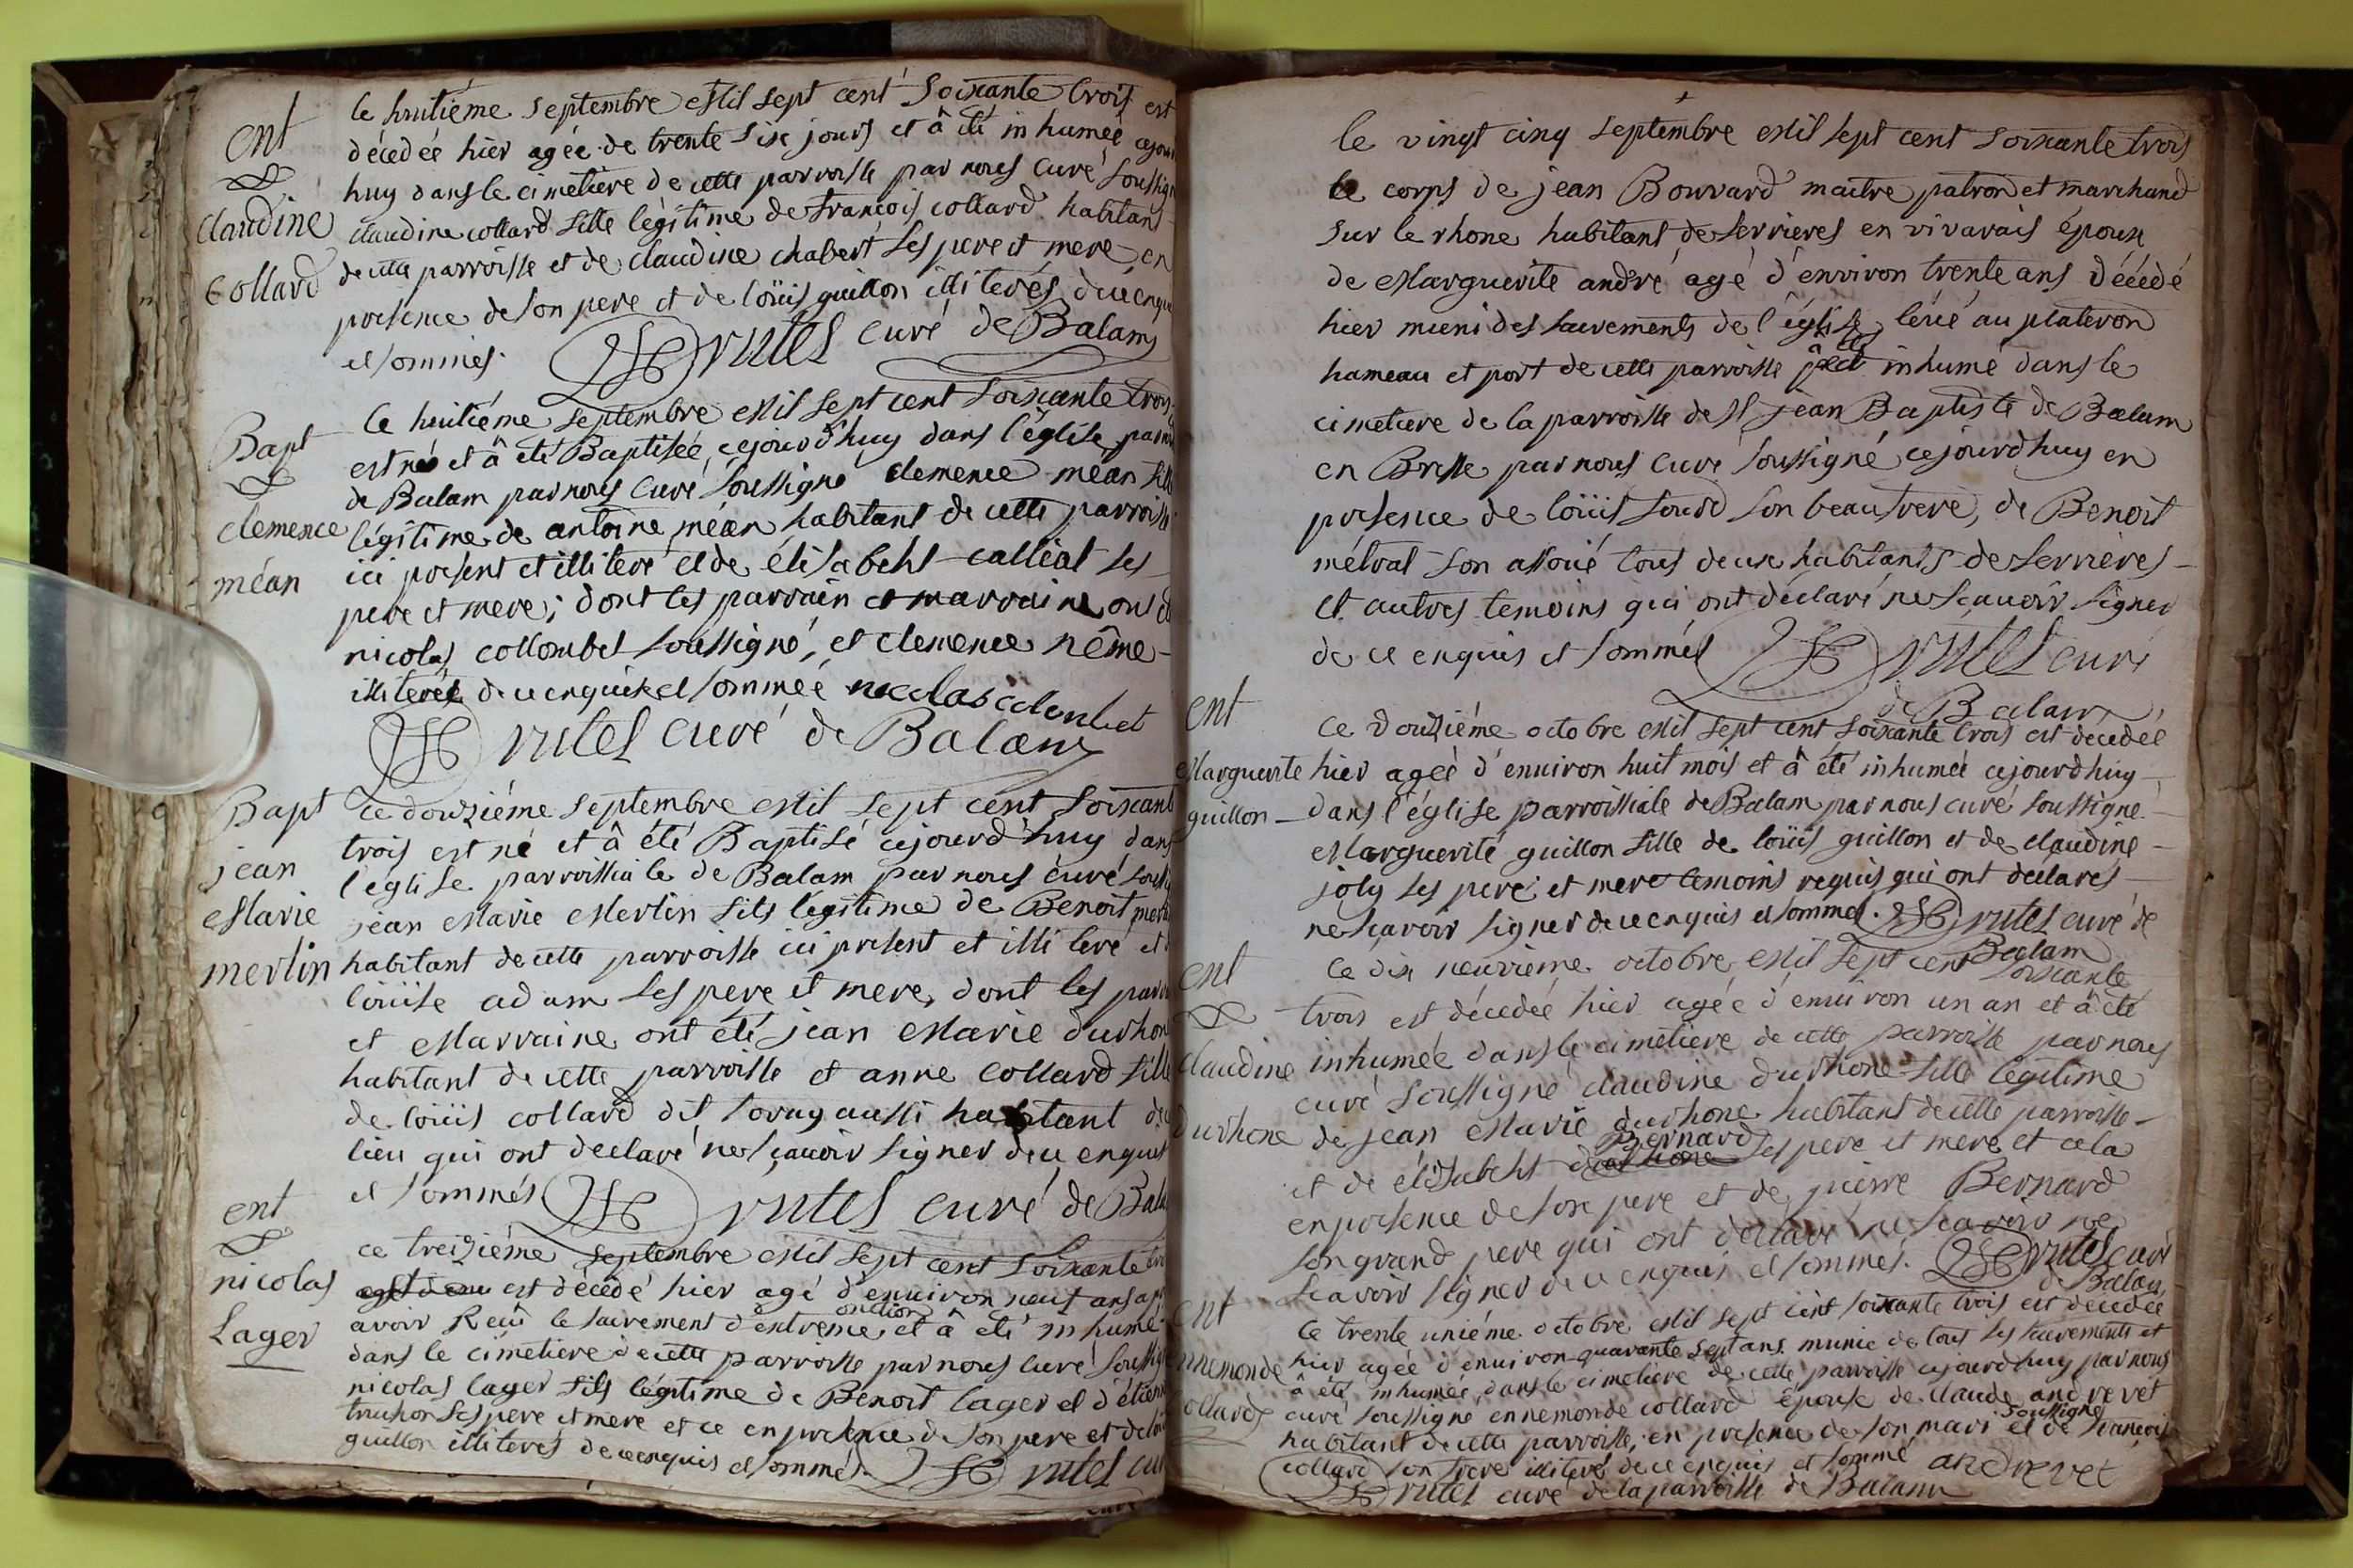 ent
claudine
Collard
le huitiéme septembre mil sept cent soixante trois est
décédée hier agée de trente six jours et â été inhumée cejour
huy dans le cimetiere de cette parroisse par nous curé soussigné
claudine collard fille légitime de françois collard habitant
de cette parroisse et de claudine chabert ses pere et mere, en
présence de son pere et de loüis guillon illiterés de ce enquis
et sommés. Brutel curé de Balam
Bapt
clemence
méan
ce huitiéme septembre mil sept cent soixante trois
est née et â été Baptisée cejourd'huy dans l'église parroi
de Balam par nous curé soussigné clemence méan fille
légitime de antoine méan habitant de cette parroisse
ici présent et illiteré et de élisabeht calliat ses
pere et mere; dont les parrain et marraine ont é
nicolas collombet soussigné, et clemence nême
illiterée de ce enquise et sommée nicolas colombet
Brutel curé de Balam
Bapt
jean
Marie
merlin
ce douziéme septembre mil sept cent soixante
trois est né et â été Baptisé cejourd'huy dans
l'église parroissiale de Balam par nous curé soussi
jean Marie Merlin fils légitime de Benoit merl
habitant de cette parroisse ici présent et illiteré et
loüise adam ses pere et mere, dont les parr
et Marraine ont été jean Marie durhon
habitant de cette parroisse et anne Collard fille
de loüis collard dit aussi habitant de
lieu qui ont declaré ne sçavoir signer de ce enquis
et sommés Brutel curé de Bala
ent
nicolas
Lager
ce treiziéme septembre mil sept cent soixante tro
est décédé hier agé d'environ neuf ans ap
avoir Reçû le sacrement d'extreme onction et â été inhumé
dans le cimetiere de cette parroisse par nous curé soussigné
nicolas lager fils légitime de Benoit lager et d'étien
truchon ses pere et mere et ce en présence de son pere et de loü
guillon illiterés de ce enquis et sommés. Brutel cur
curé
le vingt cinq septembre mil sept cent soixante trois
le corps de jean Bouvard maitre patron et marchand
sur le rhone habitant de serrieres en vivarais époux
de Marguerite andré agé d'environ trente ans décédé
hier muni des sacrements de l'église, au plateron
hameau et port de cette parroisse inhumé dans le
cimetiere de la parroisse de St jean Baptiste de Balam
en Bresse par nous curé soussigné cejourd'huy en
présence de loüis sourd son beaufrere, de Benoit
métral son assoié tous deux habitants de serrieres
et autres temoins qui ont déclaré ne sçavoir signer
de ce enquis et sommés Brutel curé
de Balam
ent
Marguerite
guillon
ce douziéme octobre mil sept cent soixante trois est décédée
hier agée d'environ huit mois et â été inhumée cejourd'huy
dans l'église parroissiale de Balam par nous curé soussigné
Marguerite guillon fille de loüis guillon et de claudine
joly ses pere et mere temoins requis qui ont declarés
ne sçavoir signer de ce enquis et sommés. Brutel curé de
Balam
ent
claudine
durhone
ce dix neuvieme octobre mil sept cent soixante
trois est décédée hier agée d'environ un an et â été
inhumée dans le cimetiere de cette parroisse par nous
curé soussigné claudine durhone fille légitime
de jean Marie durhone habitant de cette parroisse
et de elisabeht Bernard ses pere et mere et cela
en présence de son pere et de pierre Bernard
son grand pere qui ont declaré ne sçavoir ne
sçavoir signer de ce enquis et sommés. Brutel curé
de Balam
ent
nnemonde
collard
ce trente uniéme octobre mil sept cent soixante trois est decedée
hier agée d'environ quarante sept ans munie de tous les sacrements et
â été inhumée dans le cimetiere de cette parroisse cejourd'huy par nous
curé soussigné ennemonde collard épouse de claude andrevet
habitant de cette parroisse, en présence de son mari soussigné et de françois
collard son frere illiteré de ce enquis et sommé andrevet
Brutel curé de la parroisse de Balam